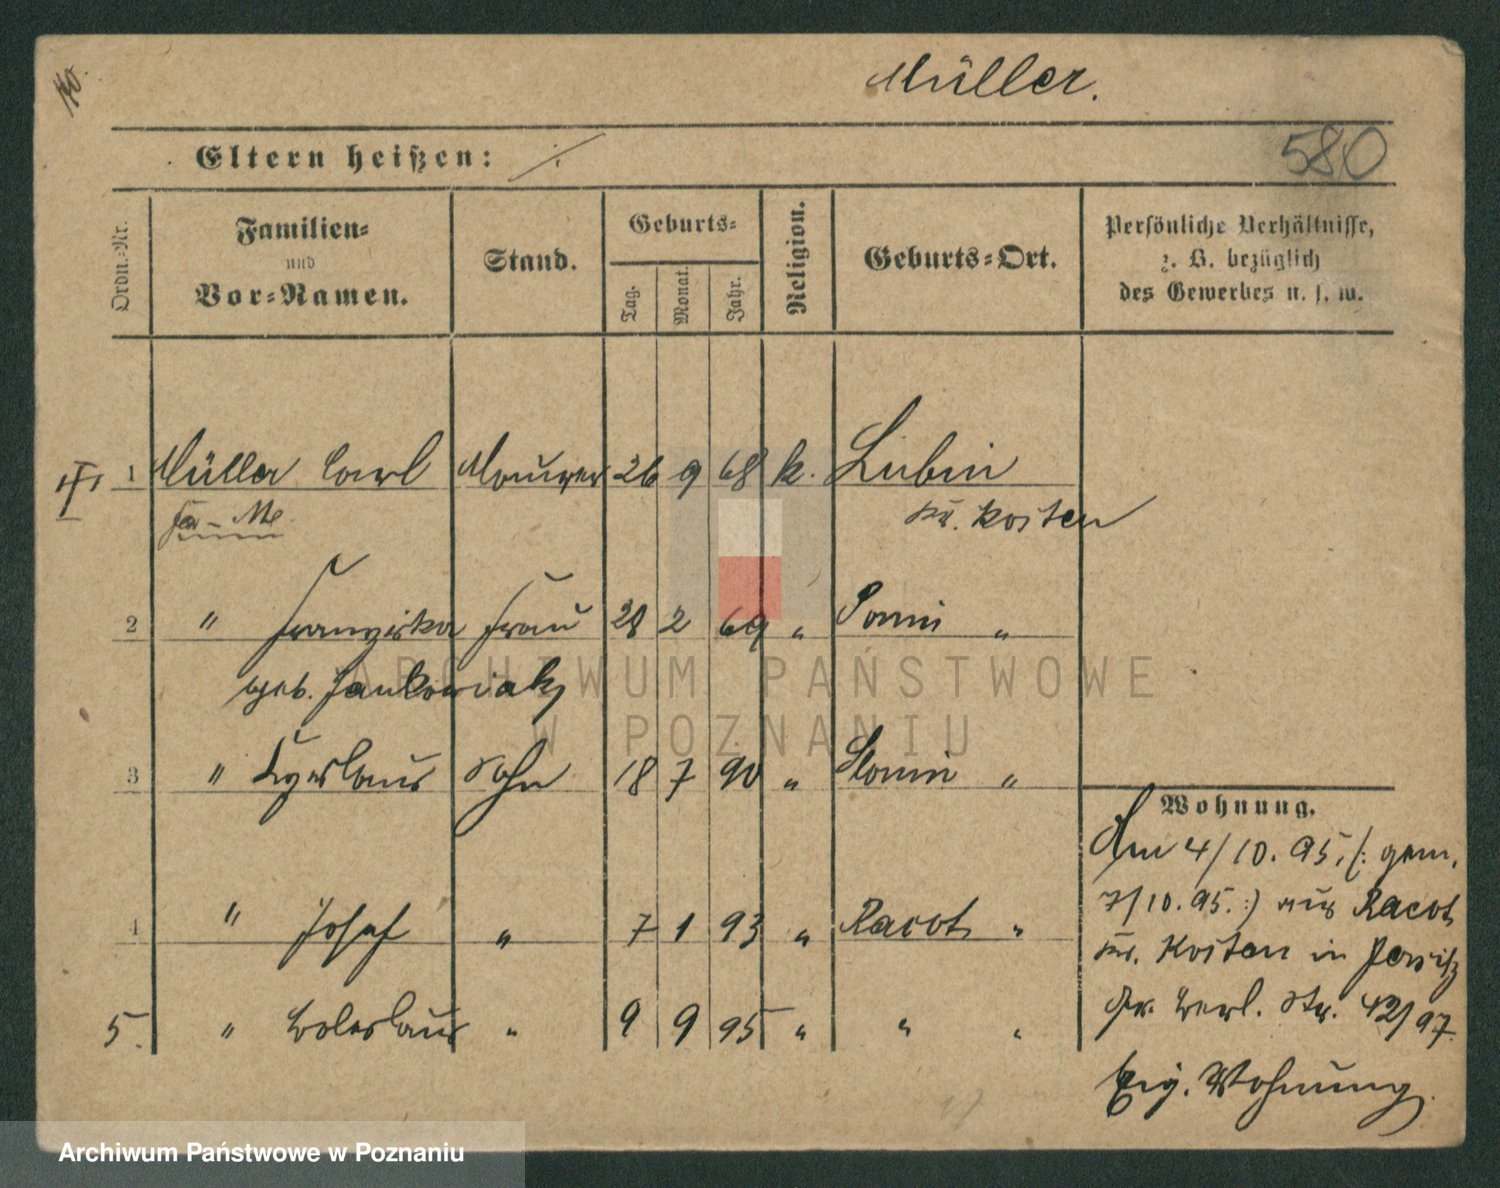 Müller.
580
Eltern heißen:
Ordn.-Nr.
Familien-
und
Vor-Namen.
Stand.
Geburts-
Tag.
Monat.
Jahr.
Religion.
Geburts-Ort.
Persönliche Verhältnisse,
z. B. bezüglich
des Gewerbes u. s. w.
1 Müller Carl Maurer 26 9 68 k. Lubin
Kr. Kosten
2 " Franziska Frau 28 2 69 " "
geb. Jankowiak
3 " Sohn 18 7 90 " Slonin "
4 " Josef " 7 1 93 " Racot "
5. " Boleslaus " 9 9 95 " " "
Wohnung.
Am 4/10. 95. /: gem.
7/10. 95. :/ aus Racot
Kr. Kosten in Jersitz
Gr. Berl. Str. 42/97.
Eig. Wohnung.
ARCHIWUM PAŃSTWOWE
W POZNANIU
Archiwum Państwowe w Poznaniu